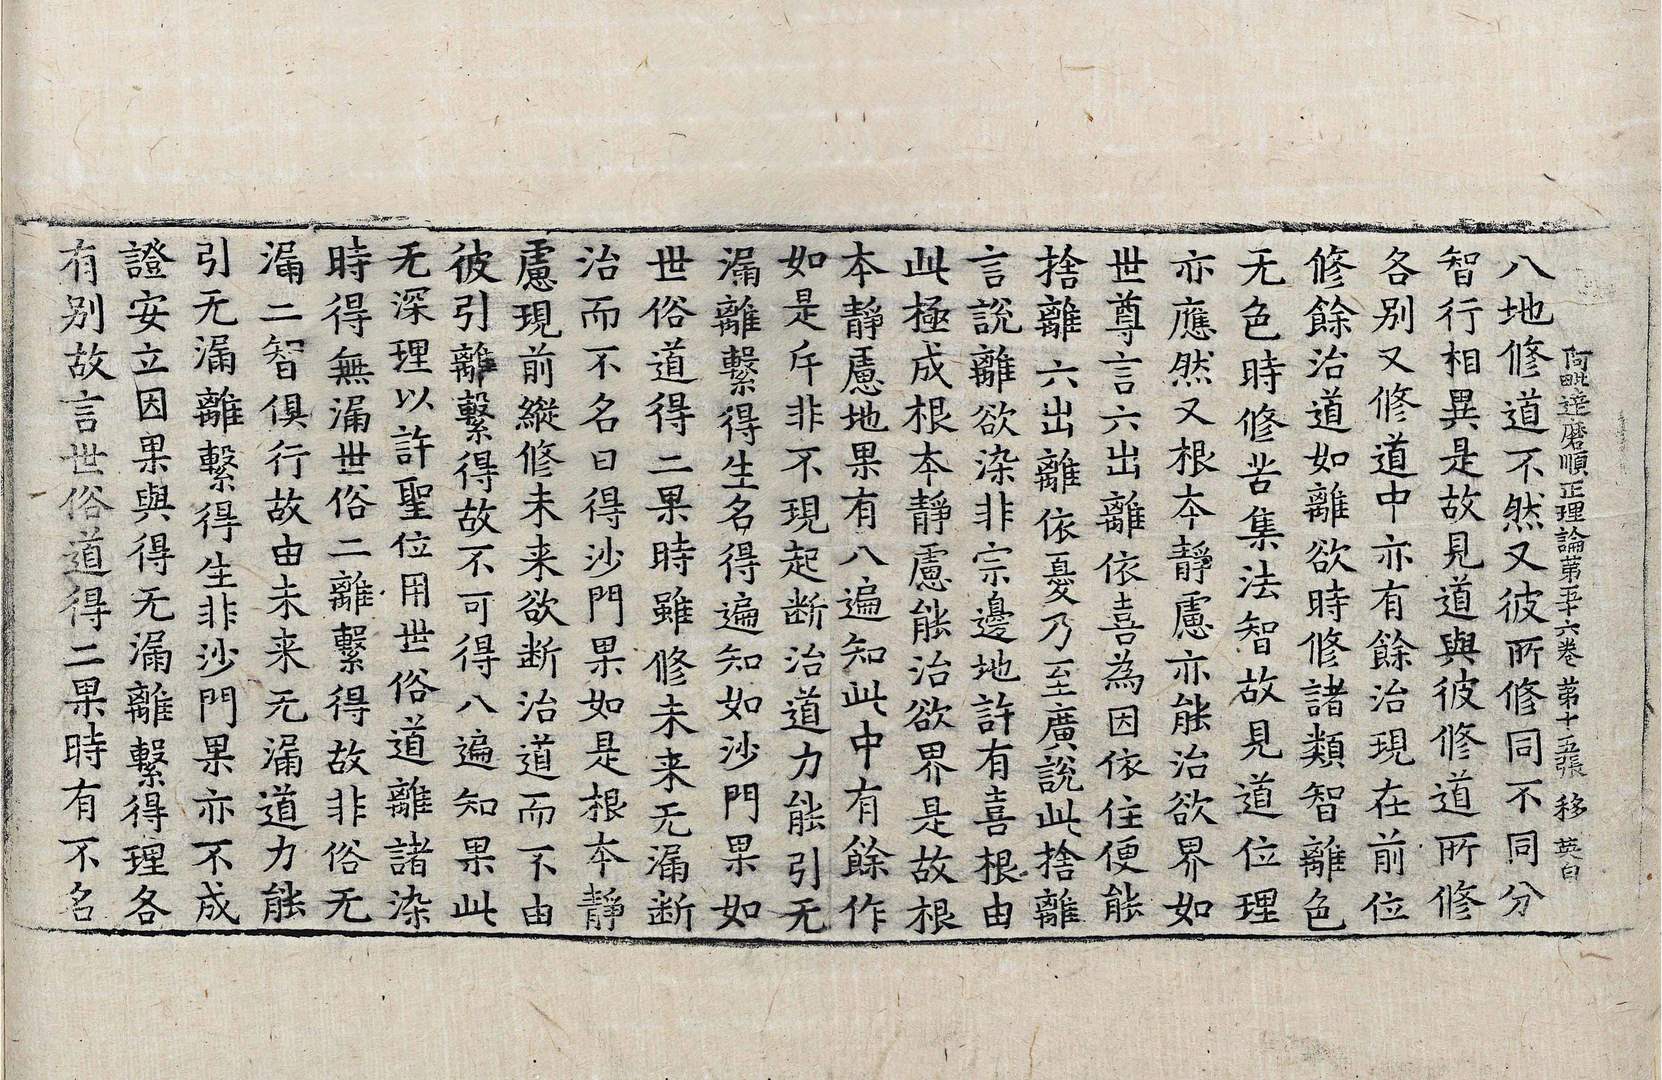 阿毗達磨順正理論第五十六卷 第十五張 移 英白
八地修道不然又彼所修同不同分
智行相異是故見道與彼修道所修
各別又修道中亦有餘治現在前位
修餘治道如離欲時修諸類智離色
无色時修苦集法智故見道位理
亦應然又根本靜慮亦能治欲界如
世尊言六出離依喜為因依住便能
捨離六出離依憂乃至廣說此捨離
言說離欲染非宗邊地許有喜根由
此極成根本靜慮能治欲界是故根
本靜慮地果有八遍知此中有餘作
如是斥非不現起断治道力能引无
漏離繫得生名得遍知如沙門果如
世俗道得二果時雖修未来无漏断
治而不名曰得沙門果如是根本靜
慮現前縱修未来欲断治道而不由
彼引離繫得故不可得八遍知果此
无深理以許聖位用世俗道離諸染
時得無漏世俗二離繫得故非俗无
漏二智俱行故由未来无漏道力能
引无漏離繫得生非沙門果亦不成
證安立因果與得无漏離繫得理各
有别故言世俗道得二果時有不名